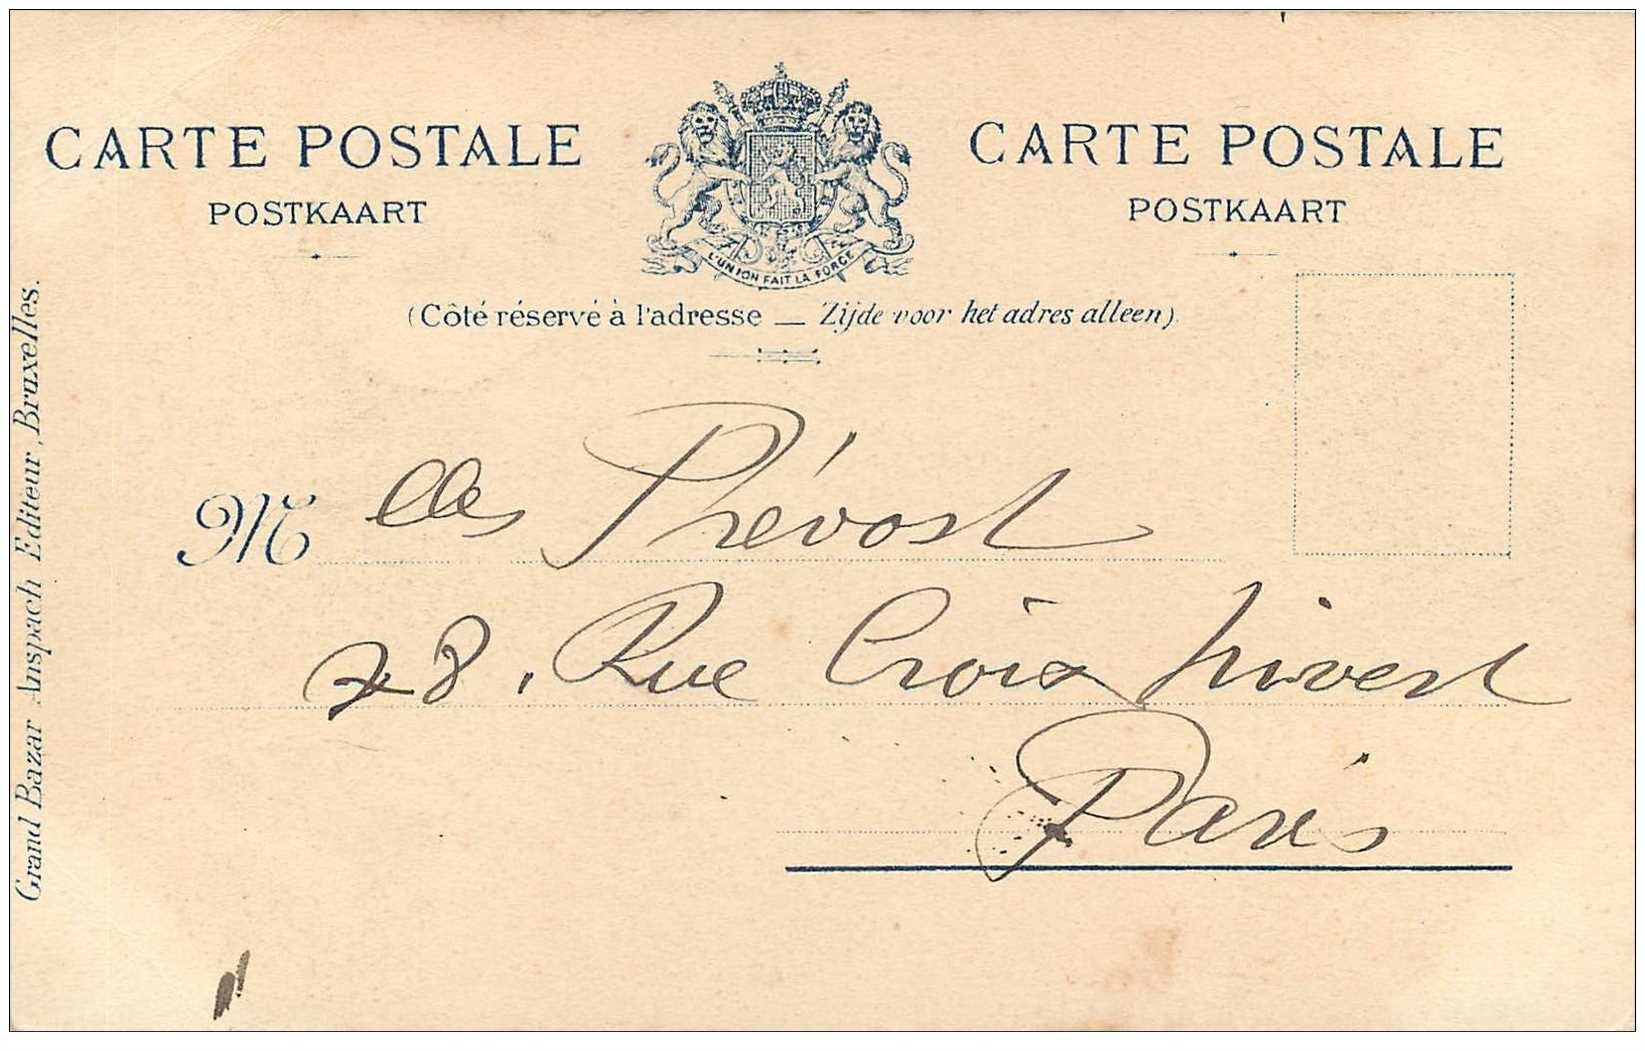 CARTE POSTALE
POSTKAART
CARTE POSTALE
POSTKAART
L'UNION FAIT LA FORCE
(Côté réservé à l'adresse — Zijde voor het adres alleen).
Mlles Prévost
78, Rue Croix Nivert
Paris
Grand Bazar Anspach Editeur, Bruxelles.